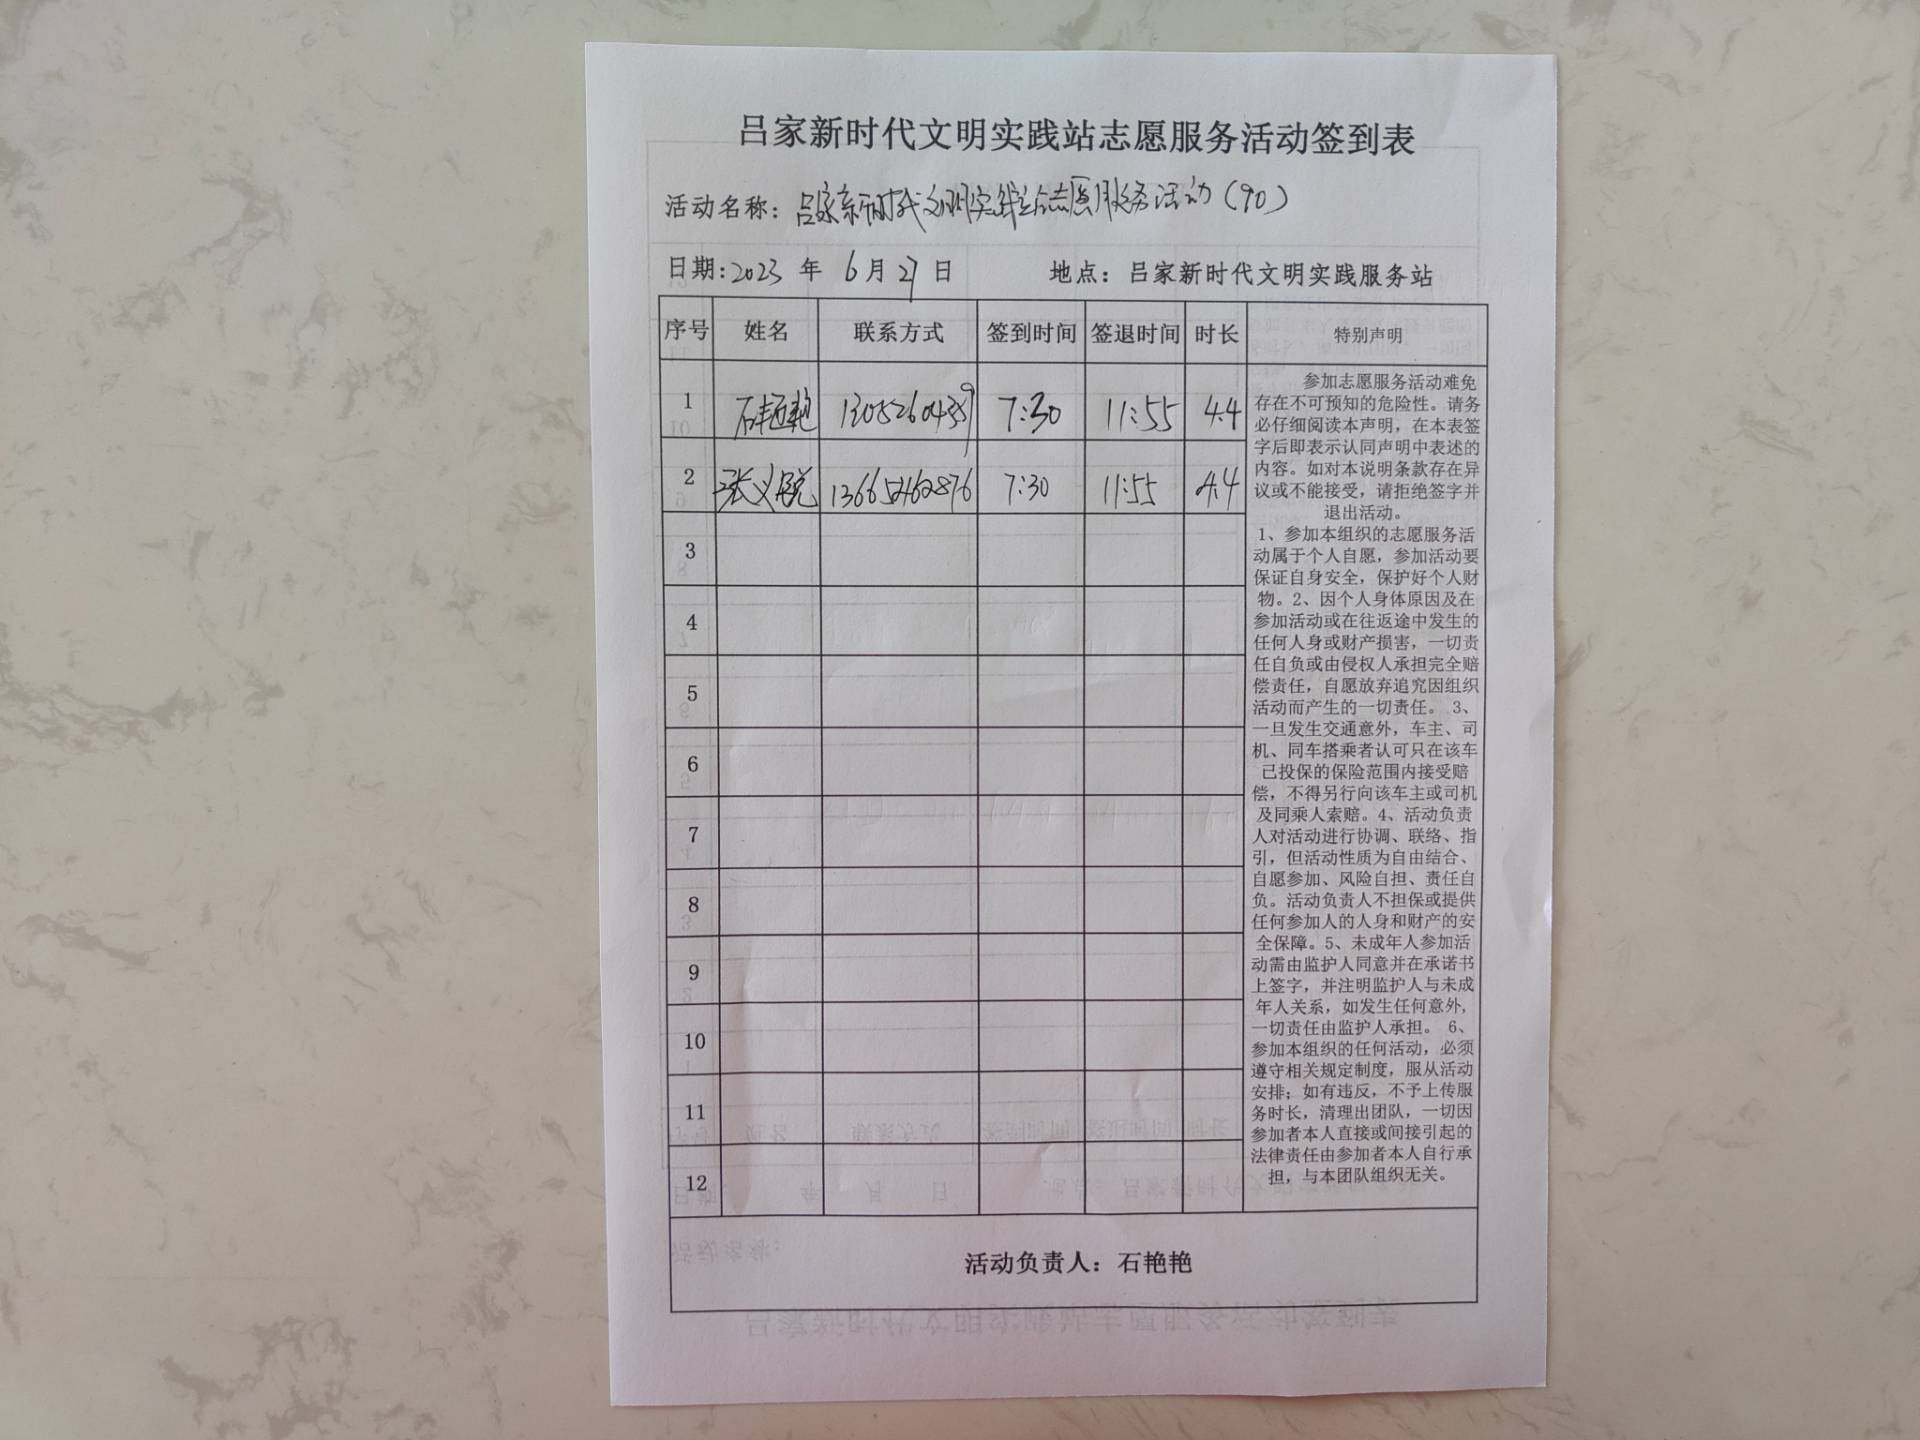 吕家新时代文明实践站志愿服务活动签到表
活动名称：吕家新时代文明实践站志愿服务活动（90）
日期：2023 年 6 月 27 日 地点：吕家新时代文明实践服务站
序号 姓名 联系方式 签到时间 签退时间 时长 特别声明
1 石艳艳 7:30 11:55 4.4
2 7:30 11:55 4.4
3
4
5
6
7
8
9
10
11
12
参加志愿服务活动难免
存在不可预知的危险性。请务
必仔细阅读本声明，在本表签
字后即表示认同声明中表述的
内容。如对本说明条款存在异
议或不能接受，请拒绝签字并
退出活动。
1、参加本组织的志愿服务活
动属于个人自愿，参加活动要
保证自身安全，保护好个人财
物。2、因个人身体原因及在
参加活动或在往返途中发生的
任何人身或财产损害，一切责
任自负或由侵权人承担完全赔
偿责任，自愿放弃追究因组织
活动而产生的一切责任。 3、
一旦发生交通意外，车主、司
机、同车搭乘者认可只在该车
已投保的保险范围内接受赔
偿，不得另行向该车主或司机
及同乘人索赔。4、活动负责
人对活动进行协调、联络、指
引，但活动性质为自由结合、
自愿参加、风险自担、责任自
负。活动负责人不担保或提供
任何参加人的人身和财产的安
全保障。5、未成年人参加活
动需由监护人同意并在承诺书
上签字，并注明监护人与未成
年人关系，如发生任何意外，
一切责任由监护人承担。 6、
参加本组织的任何活动，必须
遵守相关规定制度，服从活动
安排；如有违反，不予上传服
务时长，清理出团队，一切因
参加者本人直接或间接引起的
法律责任由参加者本人自行承
担，与本团队组织无关。
活动负责人：石艳艳